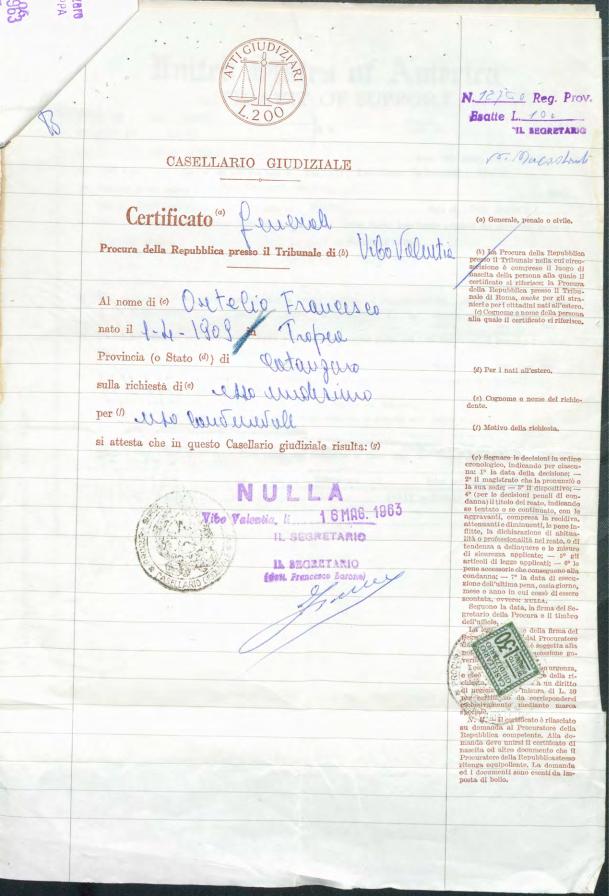 ATTI GIUDIZIARI
L. 200
N. 12750 Reg. Prov.
Esatte L. 100
IL SEGRETARIO
CASELLARIO GIUDIZIALE
Certificato (a) generale
Procura della Repubblica presso il Tribunale di (b) Vibo Valentia
Al nome di (c) Francesco
nato il 1-4-1909 in Tropea
Provincia (o Stato (d)) di Catanzaro
sulla richiesta di (e) esso medesimo
per (f) uso
si attesta che in questo Casellario giudiziale risulta: (g)
NULLA
Vibo Valentia, li 16 MAG. 1963
IL SEGRETARIO
IL SEGRETARIO
(dott. Francesco Barone)
(a) Generale, penale o civile.
(b) La Procura della Repubblica
presso il Tribunale nella cui circo-
scrizione è compreso il luogo di
nascita della persona alla quale il
certificato si riferisce; la Procura
della Repubblica presso il Tribu-
nale di Roma, anche per gli stra-
nieri e per i cittadini nati all'estero.
(c) Cognome e nome della persona
alla quale il certificato si riferisce.
(d) Per i nati all'estero.
(e) Cognome e nome del richie-
dente.
(f) Motivo della richiesta.
(g) Segnare le decisioni in ordine
cronologico, indicando per ciascu-
na: 1° la data della decisione; —
2° il magistrato che la pronunziò e
la sua sede; — 3° il dispositivo; —
4° (per le decisioni penali di con-
danna) il titolo del reato, indicando
se tentato o se continuato, con le
aggravanti, compresa la recidiva,
attenuanti e diminuenti, le pene in-
flitte, la dichiarazione di abitua-
lità o professionalità nel reato, o di
tendenza a delinquere e le misure
di sicurezza applicate; — 5° gli
articoli di legge applicati; — 6° le
pene accessorie che conseguono alla
condanna; — 7° la data di esecu-
zione dell'ultima pena, ossia giorno,
mese e anno in cui cessò di essere
scontata, ovvero: NULLA.
Seguono la data, la firma del Se-
gretario della Procura e il timbro
dell'ufficio.
della firma del
dal Procuratore
soggetta alla
urgenza,
della ri-
un diritto
misura di L. 50
per certificato da corrispondersi
esclusivamente mediante marca
N. B. — Il certificato è rilasciato
su domanda al Procuratore della
Repubblica competente. Alla do-
manda deve unirsi il certificato di
nascita od altro documento che il
Procuratore della Repubblica stesso
ritenga equipollente. La domanda
ed i documenti sono esenti da im-
posta di bollo.